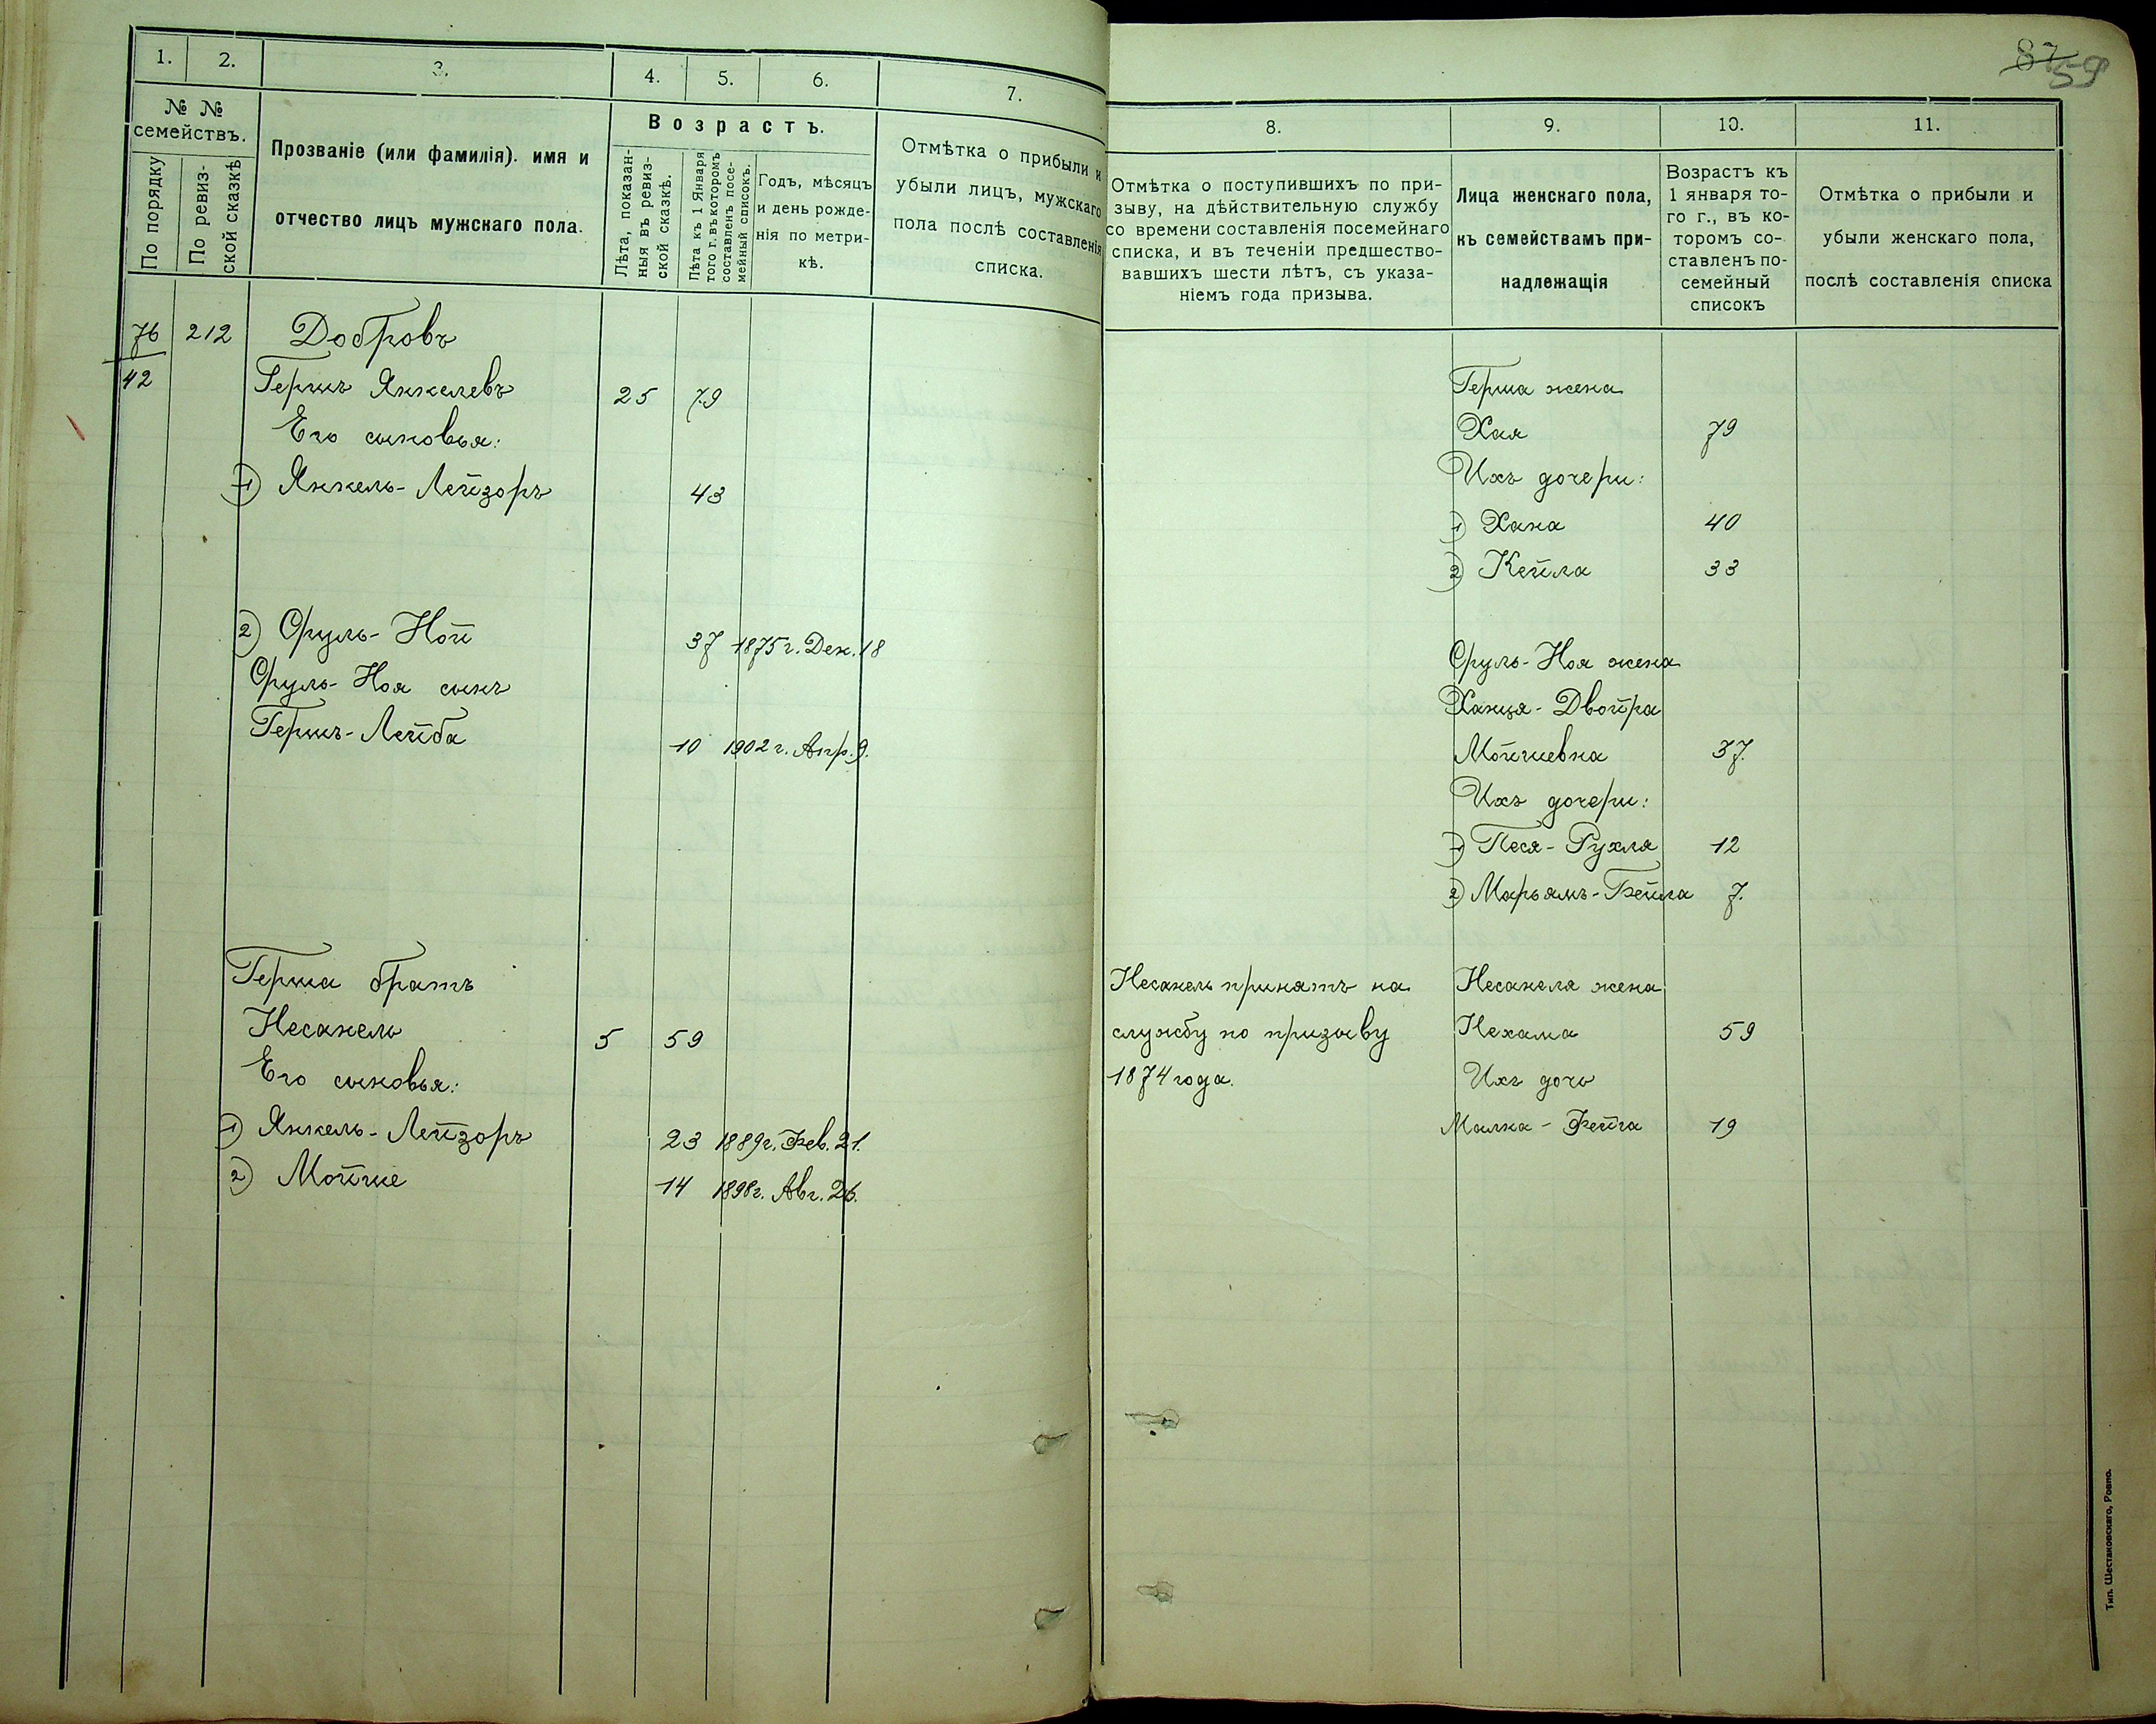 1.
2.
3.
4.
5.
6.
7.
№ №
семействъ.
По порядку
По ревиз-
ской сказкѣ
Прозваніе (или фамилія). имя и
отчество лицъ мужскаго пола.
Возрастъ.
Лѣта, показан-
ныя въ ревиз-
ской сказкѣ.
Лѣта къ 1 Января
того г. въ которомъ
составленъ посе-
мейный списокъ.
Годъ, мѣсяцъ
и день рожде-
нія по метри-
кѣ.
Отмѣтка о прибыли и
убыли лицъ, мужскаго
пола послѣ составленія
списка.
76 212 Добровъ
42 Гершъ Янкелевъ 25 79
Его сыновья:
1) Янкель-Лейзоръ 43
2) Сруль-Ной 37 1875 г. Дек. 18
Сруль-Ноя сынъ
Гершъ-Лейба 10 1902 г. Апр. 9.
Герша братъ
Несанель 5 59
Его сыновья:
1) Янкель-Лейзоръ 23 1889 г. Фев. 21.
2) Мойше 14 1898 г. Авг. 26.
87
59
8.
9.
10.
11.
Отмѣтка о поступившихъ по при-
зыву, на дѣйствительную службу
со времени составленія посемейнаго
списка, и въ теченіи предшество-
вавшихъ шести лѣтъ, съ указа-
ніемъ года призыва.
Лица женскаго пола,
къ семействамъ при-
надлежащія
Возрастъ къ
1 января то-
го г., въ ко-
торомъ со-
ставленъ по-
семейный
списокъ
Отмѣтка о прибыли и
убыли женскаго пола,
послѣ составленія списка
Герша жена
Хая 79
Ихъ дочери:
1) Хана 40
2) Кейла 33
Сруль-Ноя жена
Ханця-Двойра
Мойшевна 37.
Ихъ дочери:
1) Песя-Рухля 12
2) Марьямъ-Бейла 7.
Несанель принятъ на Несанеля жена
службу по призыву Нехама 59
1874 года. Ихъ дочь
Малка-Фейга 19
Тип. Шестаковскаго, Ровно.